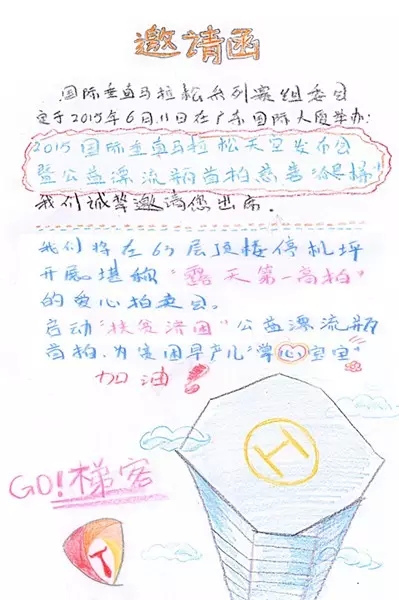 邀请函
国际垂直马拉松系列赛组委会
定于2015年6月11日在广东国际大厦举办:
2015国际垂直马拉松天空发布会
暨公益漂流瓶首拍慈善
我们诚挚邀请您出席.
我们将在63层顶楼停机坪
开展堪称"露天第一高拍"
的爱心拍卖会。
启动"扶贫济困"公益漂流瓶
首拍.为贫困早产儿"掌心宝宝"
加油!
H
GO!梯客
T